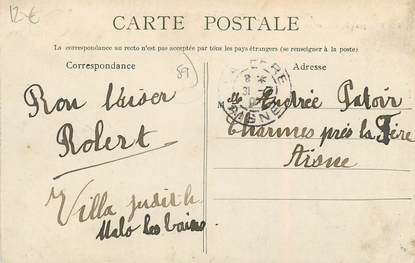 12€
CARTE POSTALE
La correspondance au recto n'est pas acceptée par tous les pays étrangers (se renseigner à la poste)
Correspondance
Adresse
89
LA FERE
AISNE
Bon baiser
Robert
Villa Judith
Malo les bains
M Andrée Patoir
Charmes près la Fère
Aisne